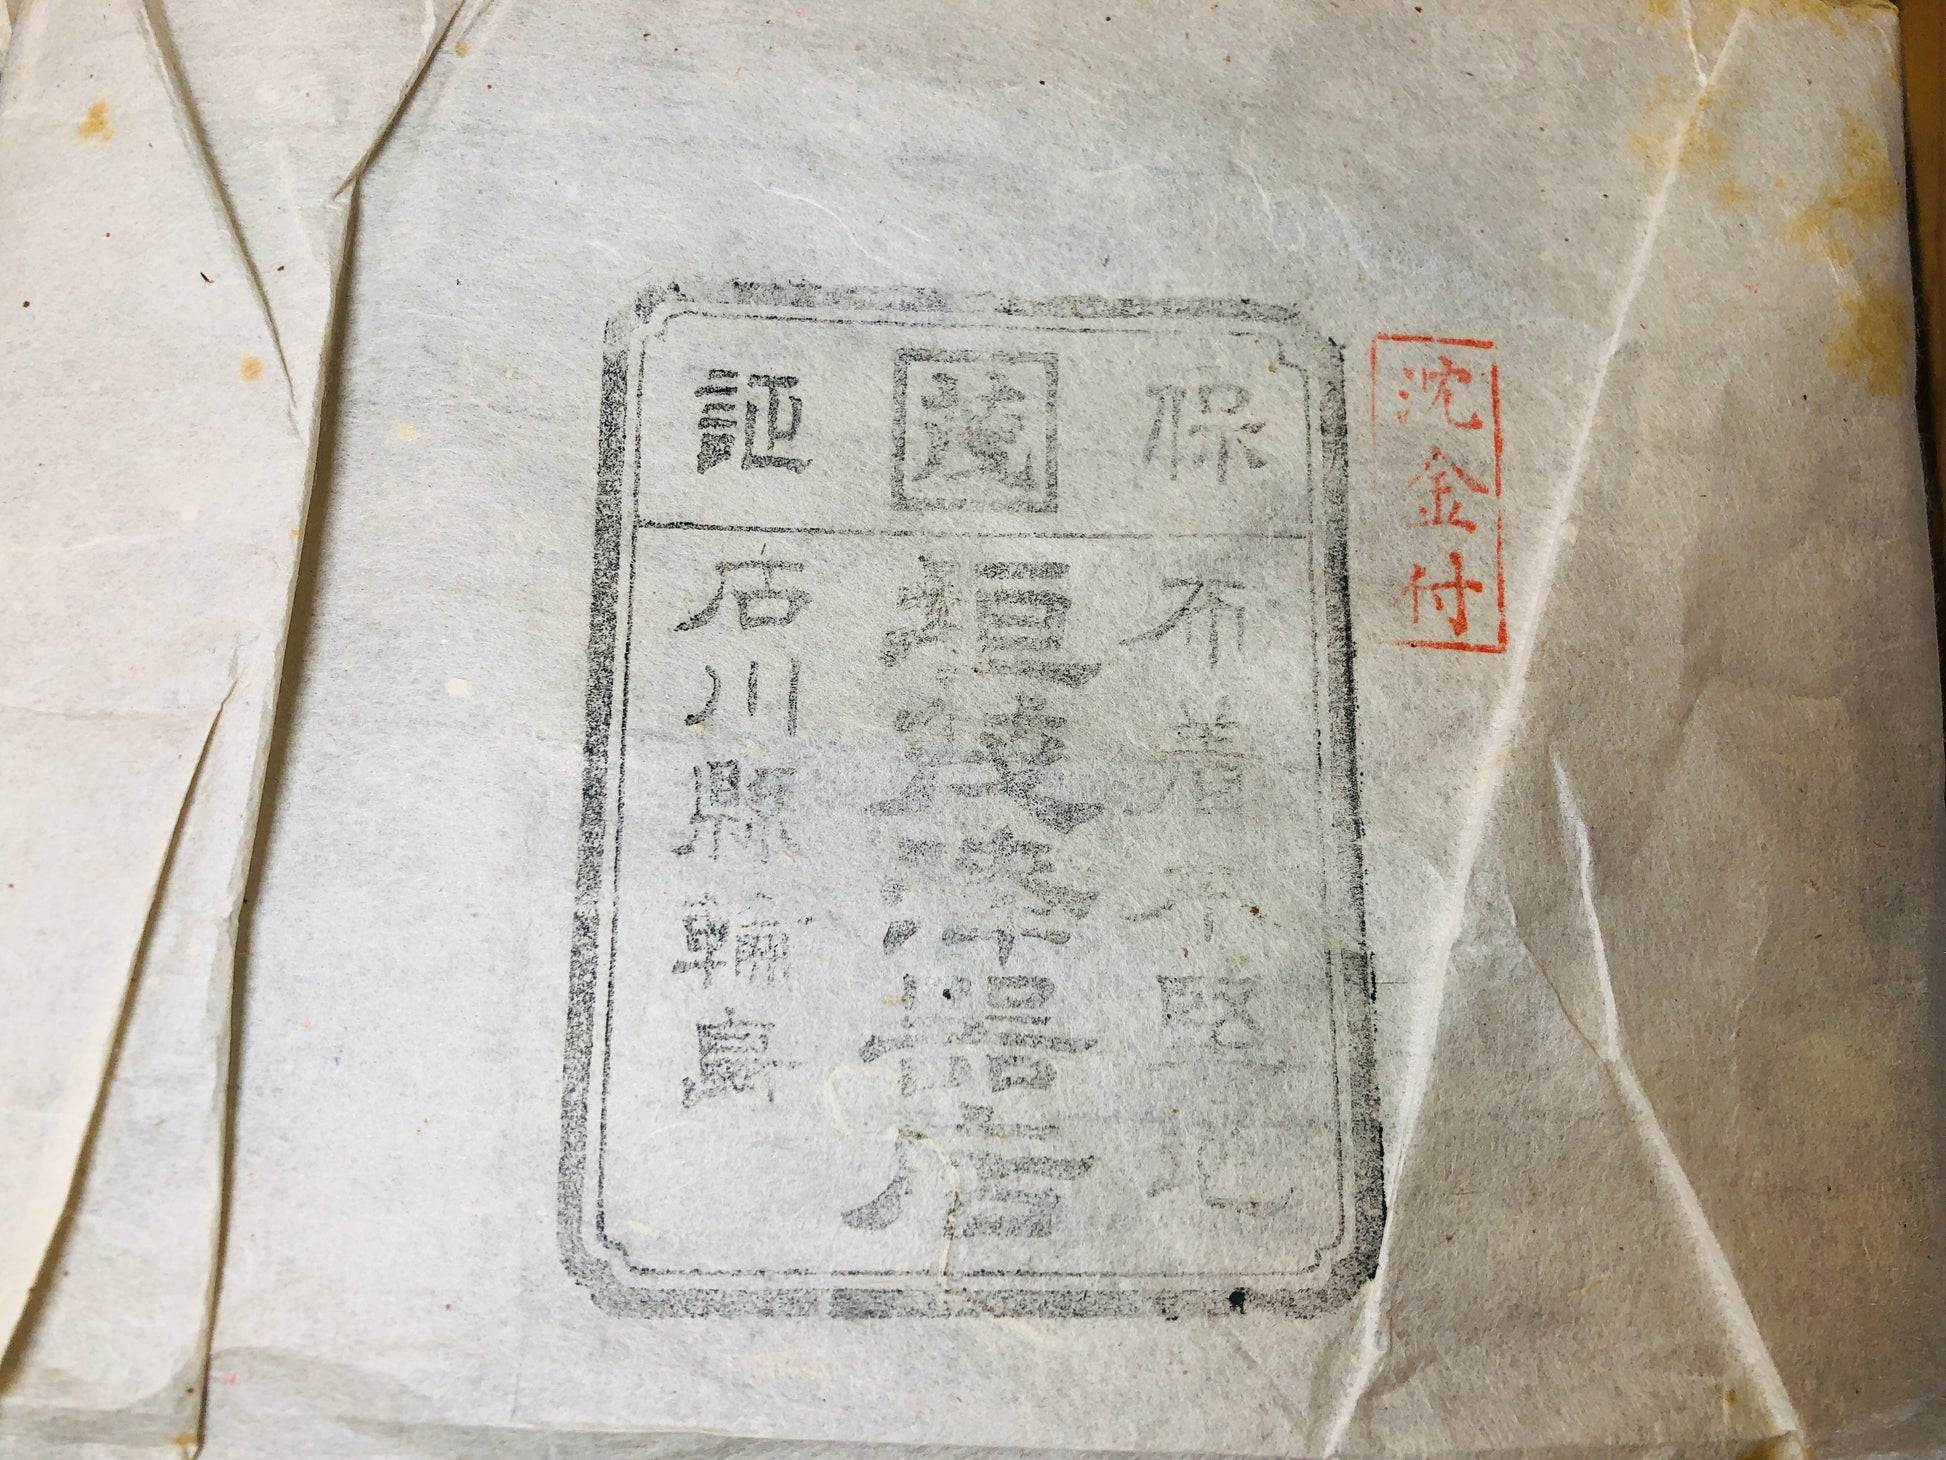 沈金付
保茂証
布着本堅地
垣茂漆器店
石川縣輪島